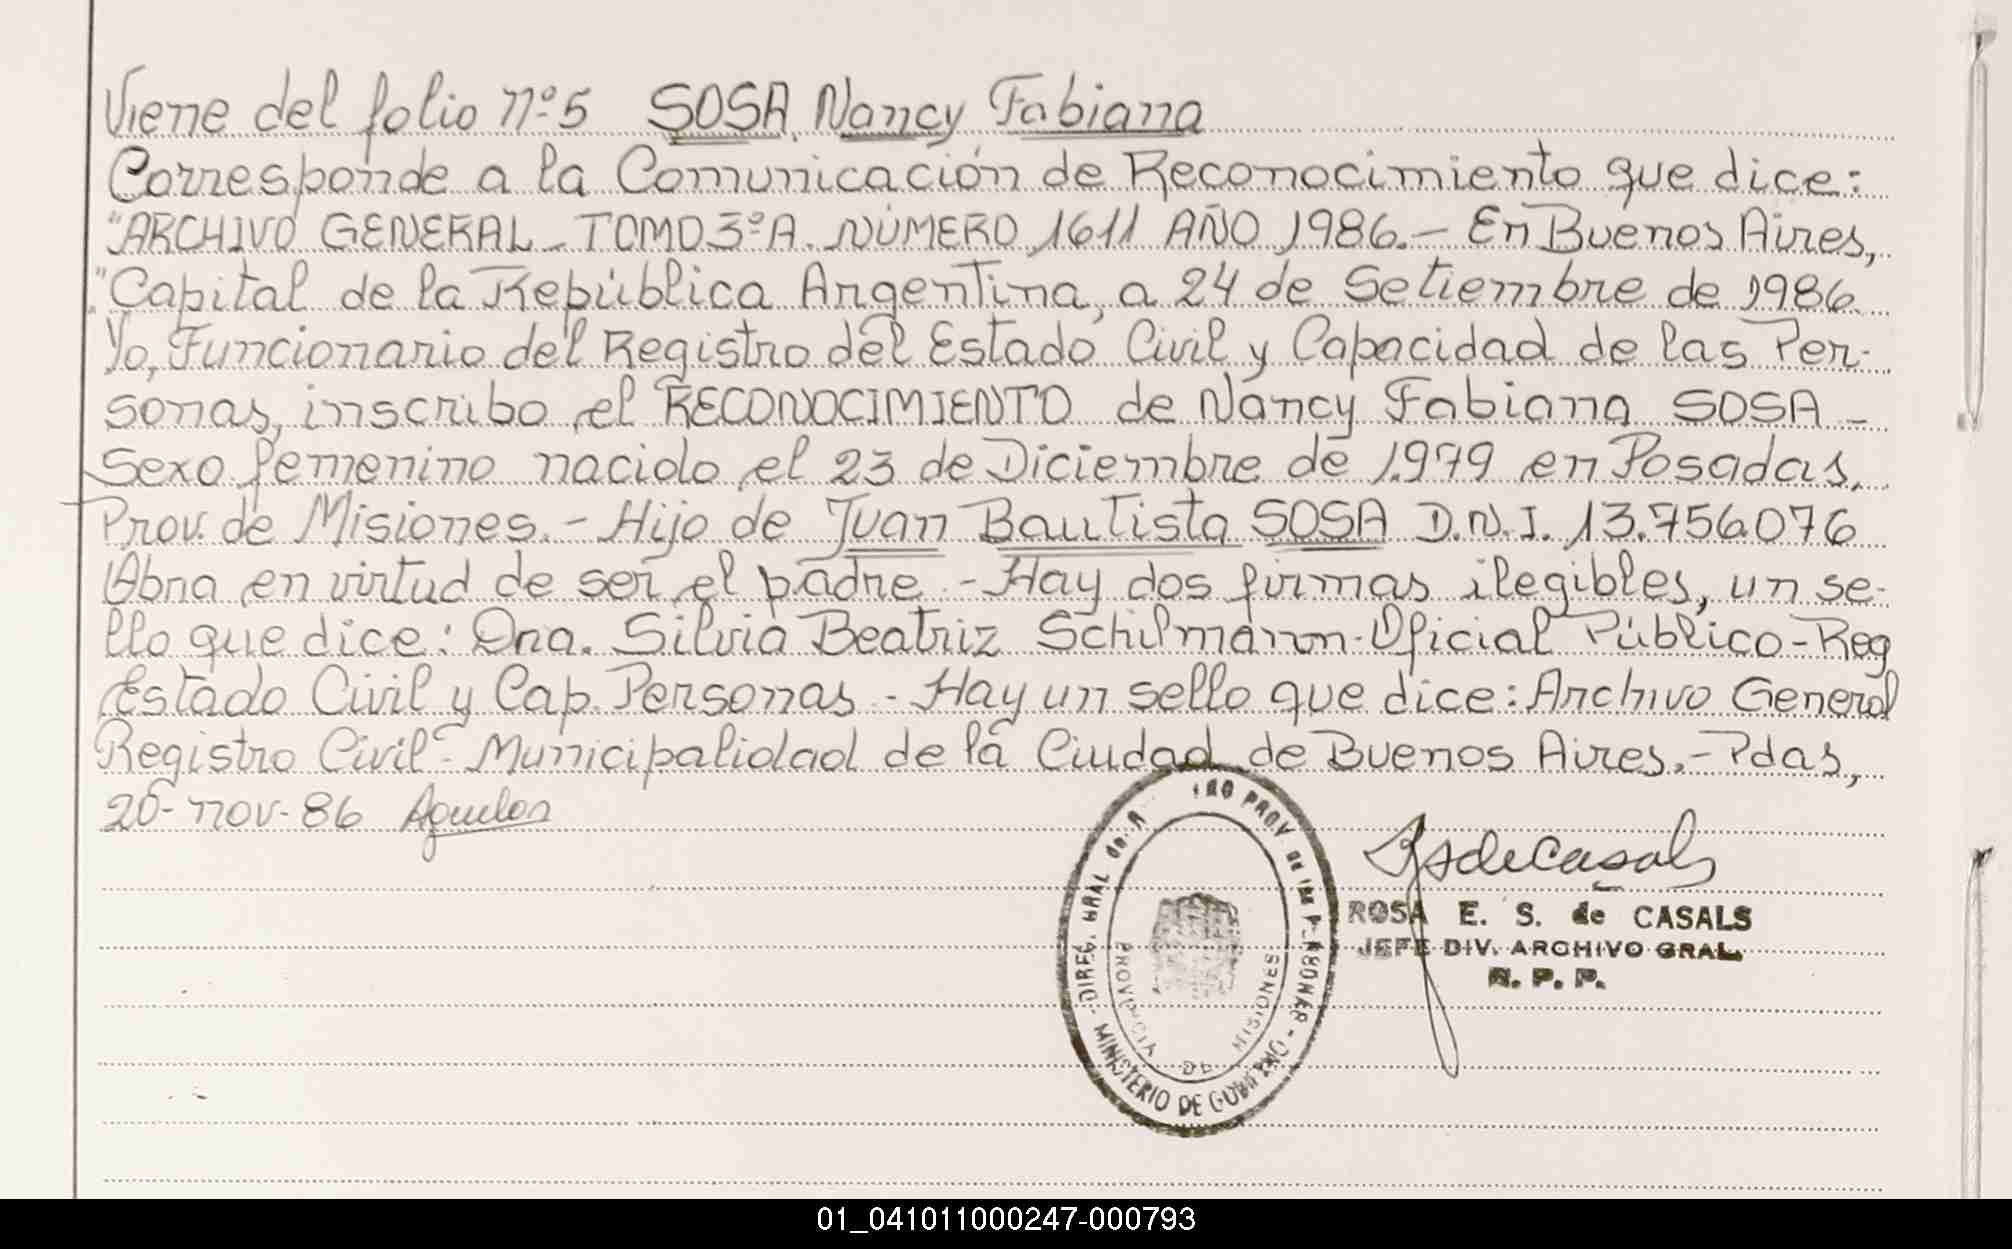 Viene del folio Nº 5 SOSA, Nancy Fabiana
Corresponde a la Comunicación de Reconocimiento que dice:
"ARCHIVO GENERAL - TOMO 3º A. NÚMERO 1611 AÑO 1986.- En Buenos Aires,
"Capital de la República Argentina, a 24 de Setiembre de 1986.
Yo, Funcionario del Registro del Estado Civil y Capacidad de las Per-
sonas, inscribo el RECONOCIMIENTO de Nancy Fabiana SOSA -
Sexo femenino nacido el 23 de Diciembre de 1.979 en Posadas,
Prov. de Misiones.- Hijo de Juan Bautista SOSA D.N.I. 13.756.076
Obra en virtud de ser el padre.- Hay dos firmas ilegibles, un se-
llo que dice: Dra. Silvia Beatriz Schilmann-Oficial Público-Reg
Estado Civil y Cap. Personas.- Hay un sello que dice: Archivo General
Registro Civil- Municipalidad de la Ciudad de Buenos Aires.- Pdas,
20-nov-86
DIREC. GRAL de PROV de las PERSONAS - MINISTERIO DE GOBIERNO -
PROVINCIA DE MISIONES
RsdeCasals
ROSA E. S. de CASALS
JEFE DIV. ARCHIVO GRAL.
R. P. P.
01_041011000247-000793